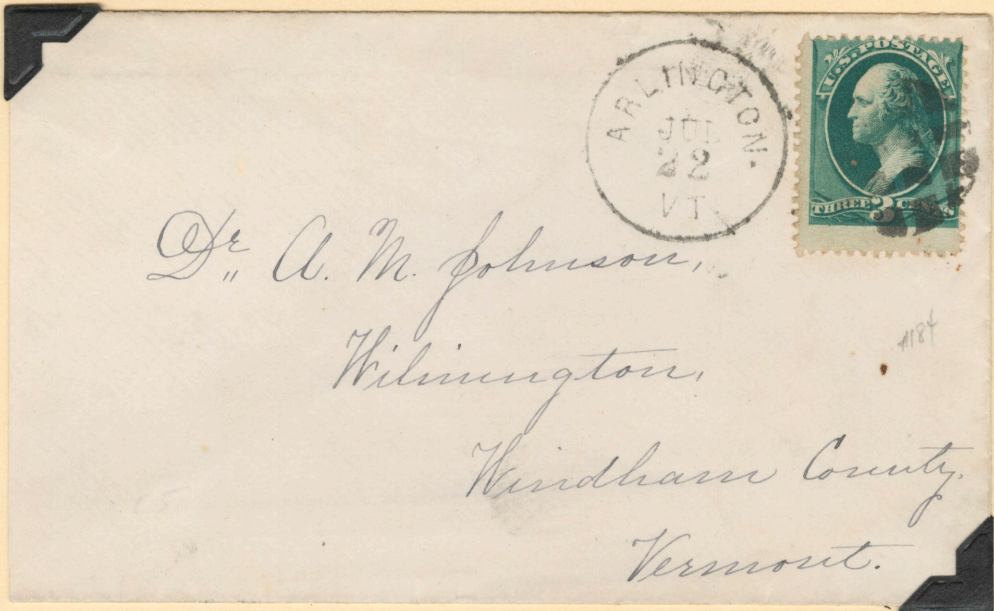 ARLINGTON.
JUL
22
VT.
U.S. POSTAGE
THREE 3 CENTS
Dr. A. M. Johnson,
Wilmington,
Windham County,
Vermont.